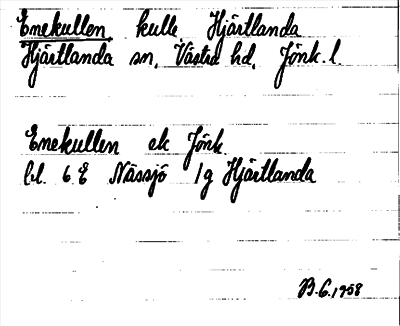 Enekullen, kulle Hjärtlanda
Hjärtlanda sn, Västra hd, Jönk. l.
Enekullen ek Jönk.
bl. 6 E Nässjö 1g Hjärtlanda
B.G. 1958